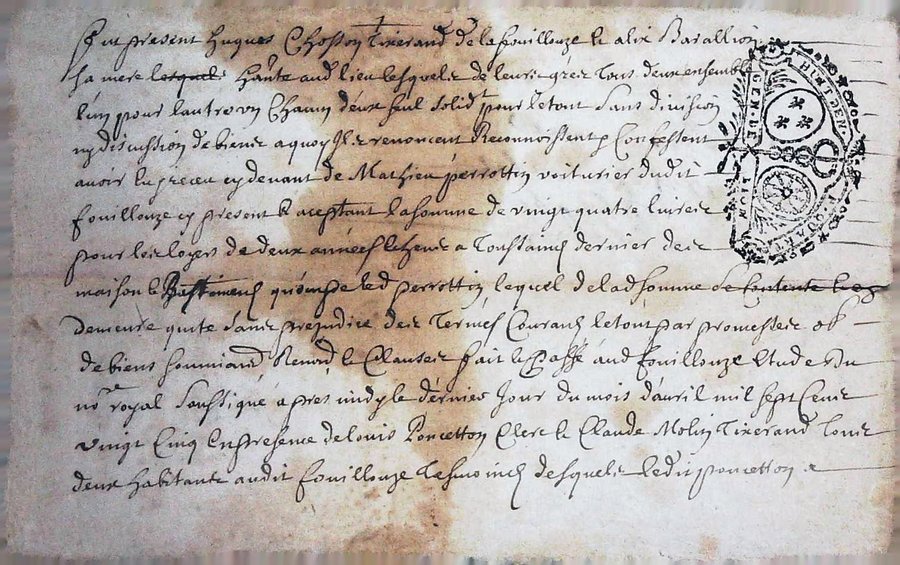 fut present hugues Chosson Tixerand de lafouillouze & alix Barallion
sa mere lesquels hante aud lieu lesquels de leurs grés tous deux ensemble
lun pour lautre un Chacun deux seul solidt pour letout sans division
ny discussion de biens a quoy Ils renoncent Reconnoissent & Confessent
avoir eu receu cy devant de Mathieu perrottin voiturier dudit
fouillouze cy present & aceptant la somme de vingt quatre livres
pour les loyers de deux années echeus a Toussaincts dernier des
maison & Bastiments qu'occupe led perrottin, lequel de lad somme se contente &
demeure quite sans prejudice des Termes Courans letout par promesses ob
de biens soumiond Renond & Clauses fait & Passé aud fouillouze etude du
nore royal soussigné apres midy le dernier Jour du mois d'avril mil sept Cens
vingt Cinq en presence de louis Poncetton Clerc & Claude Molin Tixerand Tous
deux habitants audit fouillouze Tesmoincts desquels ledit poncetton a
GEN. DE LION
HUIT DEN.